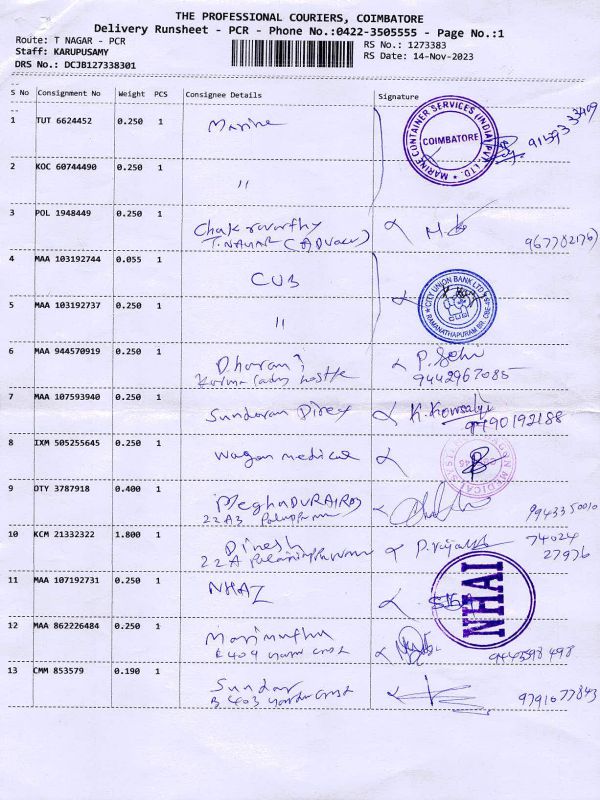 THE PROFESSIONAL COURIERS, COIMBATORE
Delivery Runsheet - PCR - Phone No.:0422-3505555 - Page No.:1
Route: T NAGAR - PCR
Staff: KARUPUSAMY
DRS No.: DCJB127338301
RS No.: 1273383
RS Date: 14-Nov-2023
S No Consignment No Weight PCS Consignee Details Signature
1 TUT 6624452 0.250 1 Marine
MARINE CONTAINER SERVICES (INDIA) PVT. LTD. COIMBATORE
2 KOC 60744490 0.250 1 "
3 POL 1948449 0.250 1 Chakravarthy
T. NAGAR (ADVOCATE)
4 MAA 103192744 0.055 1 CUB
CITY UNION BANK LTD
RAMANATHAPURAM BR. CBE
5 MAA 103192737 0.250 1 "
6 MAA 944570919 0.250 1 Dharani P. Selvi
9442967085
7 MAA 107593940 0.250 1 Sundaram Direx K. Kowsalya
8 IXM 505255645 0.250 1 Wagon medical
9 OTY 3787918 0.400 1 Megha DURAIRAJ
22A3 9943350010
10 KCM 21332322 1.800 1 Dinesh 74024
22A 27976
11 MAA 107192731 0.250 1 NHAI
NHAI
12 MAA 862226484 0.250 1 Marimuthu
E 409 9443598498
13 CMM 853579 0.190 1 Sundar
B 403 9791077843